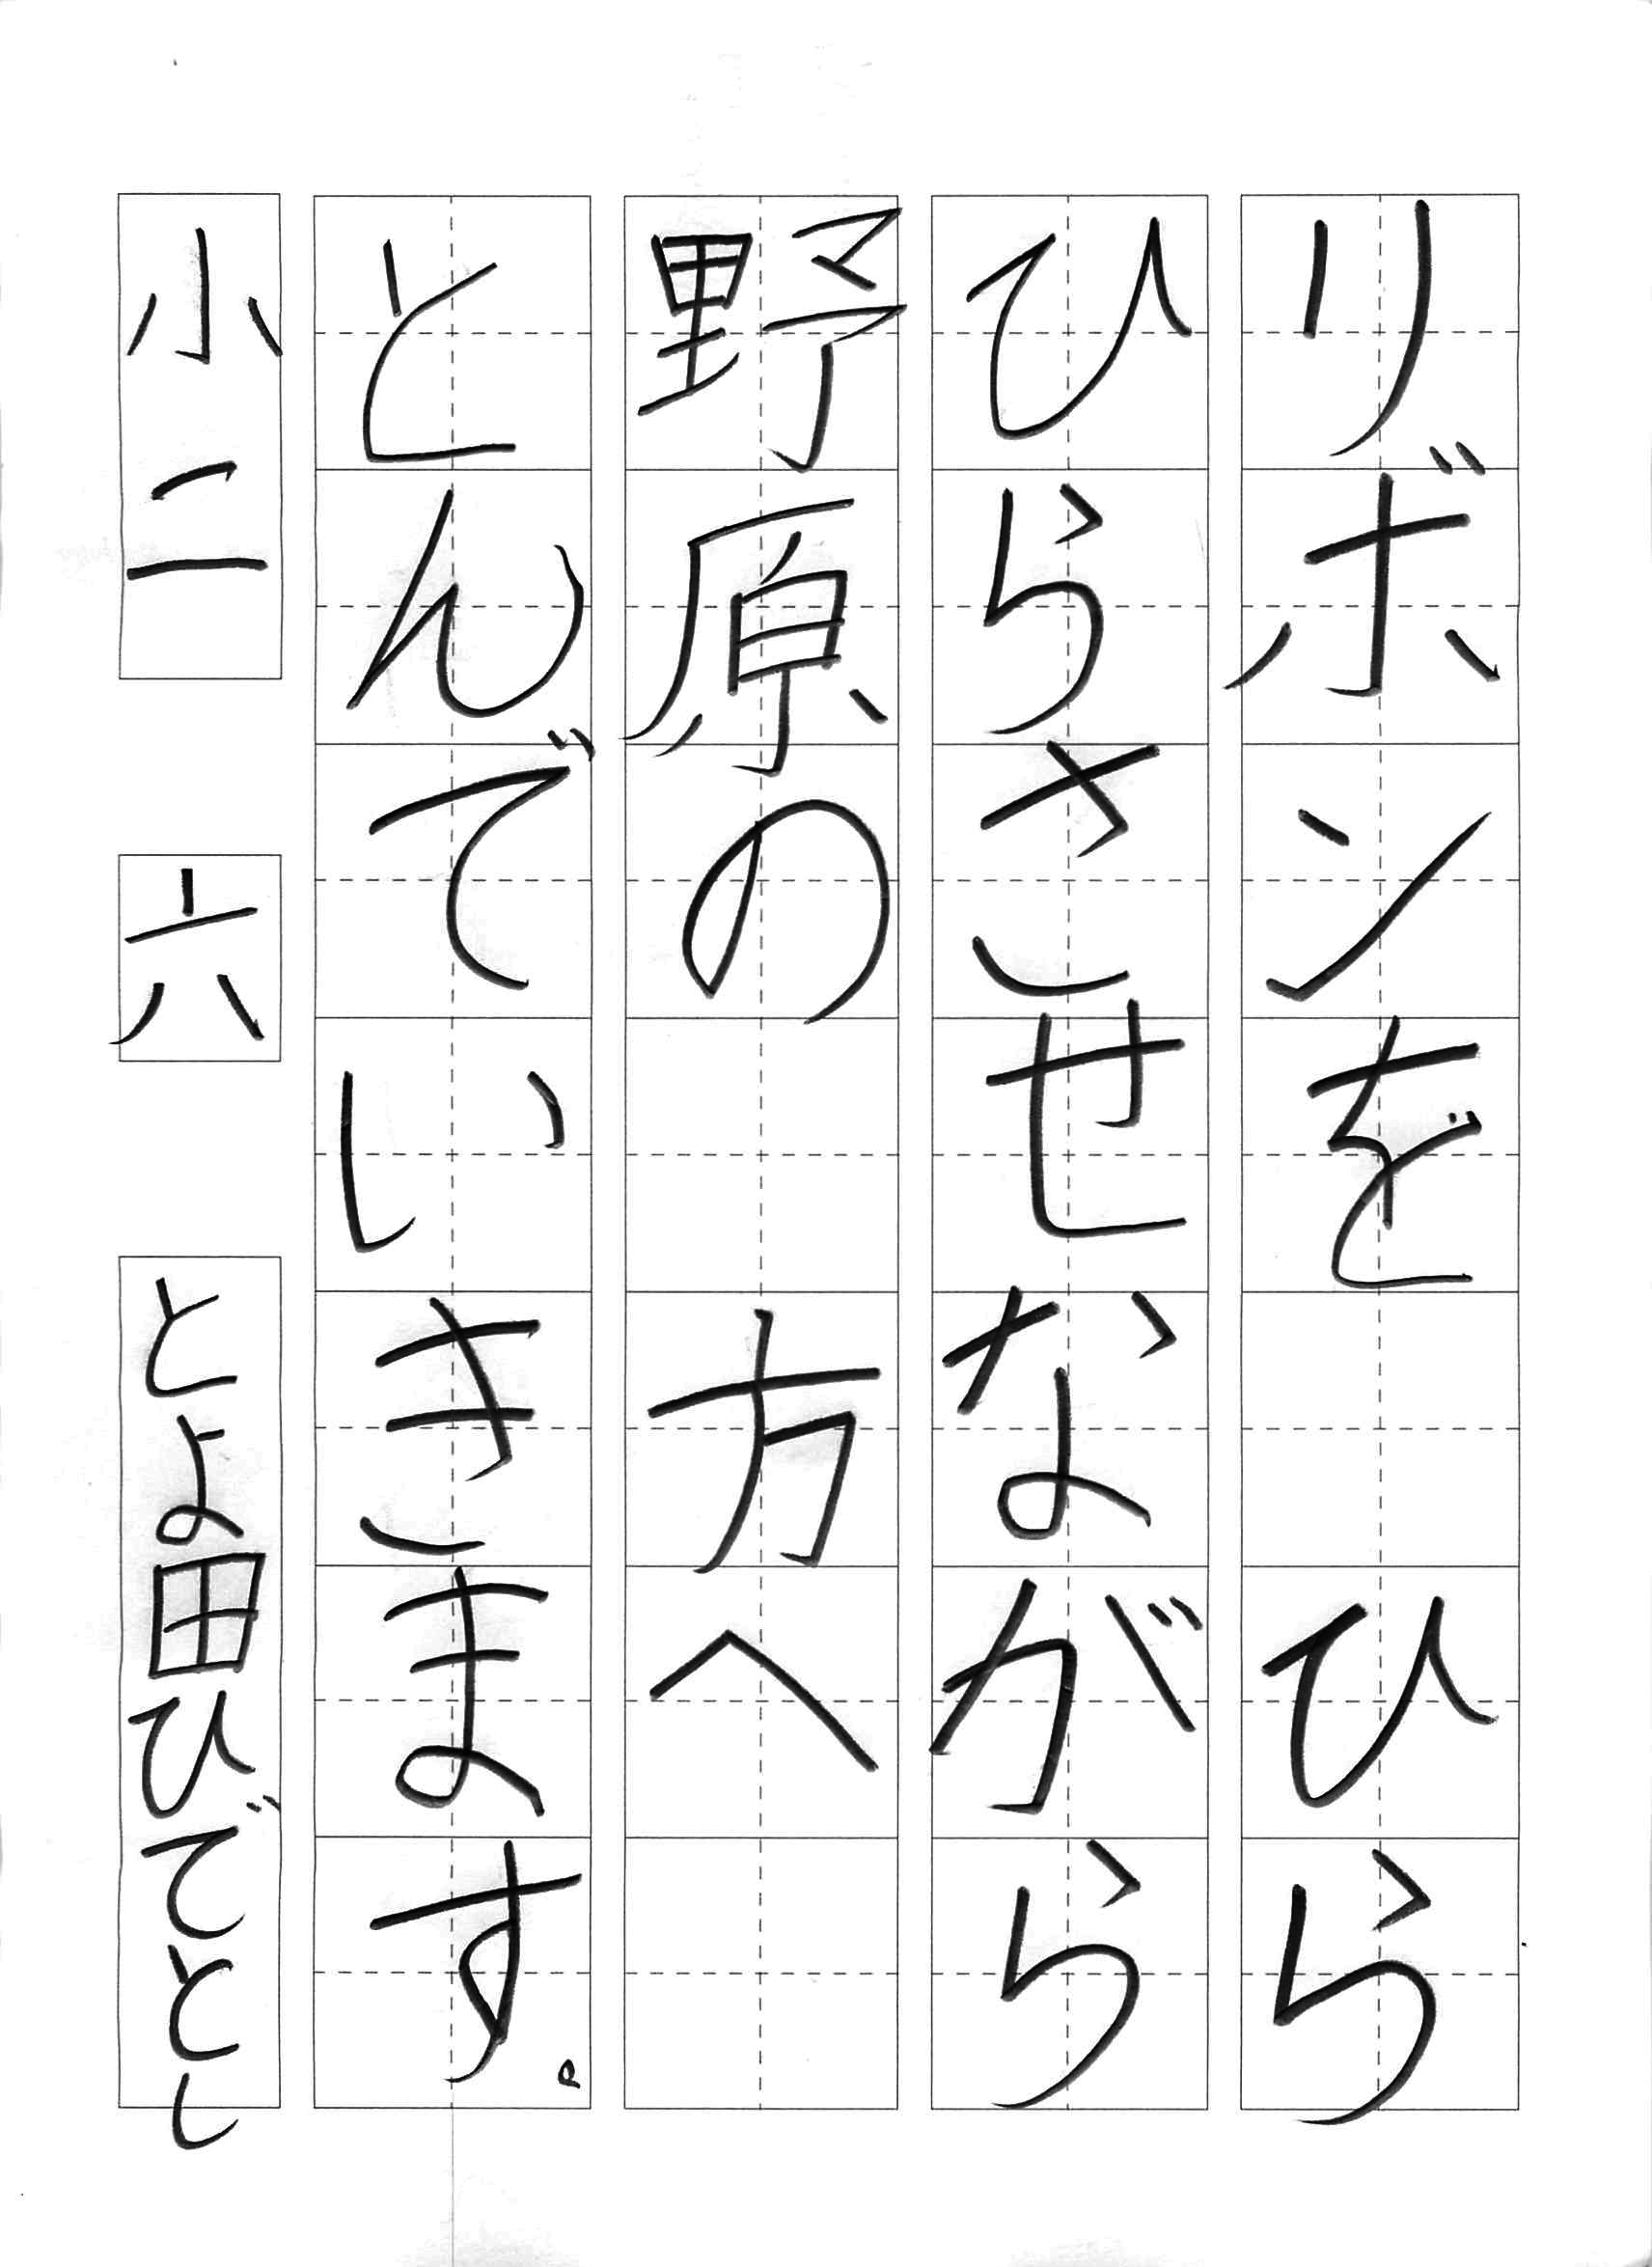 リボンを　ひら
ひらさせながら
野原の　方へ
とんでいきます。
小二　六　とよ田ひでとし